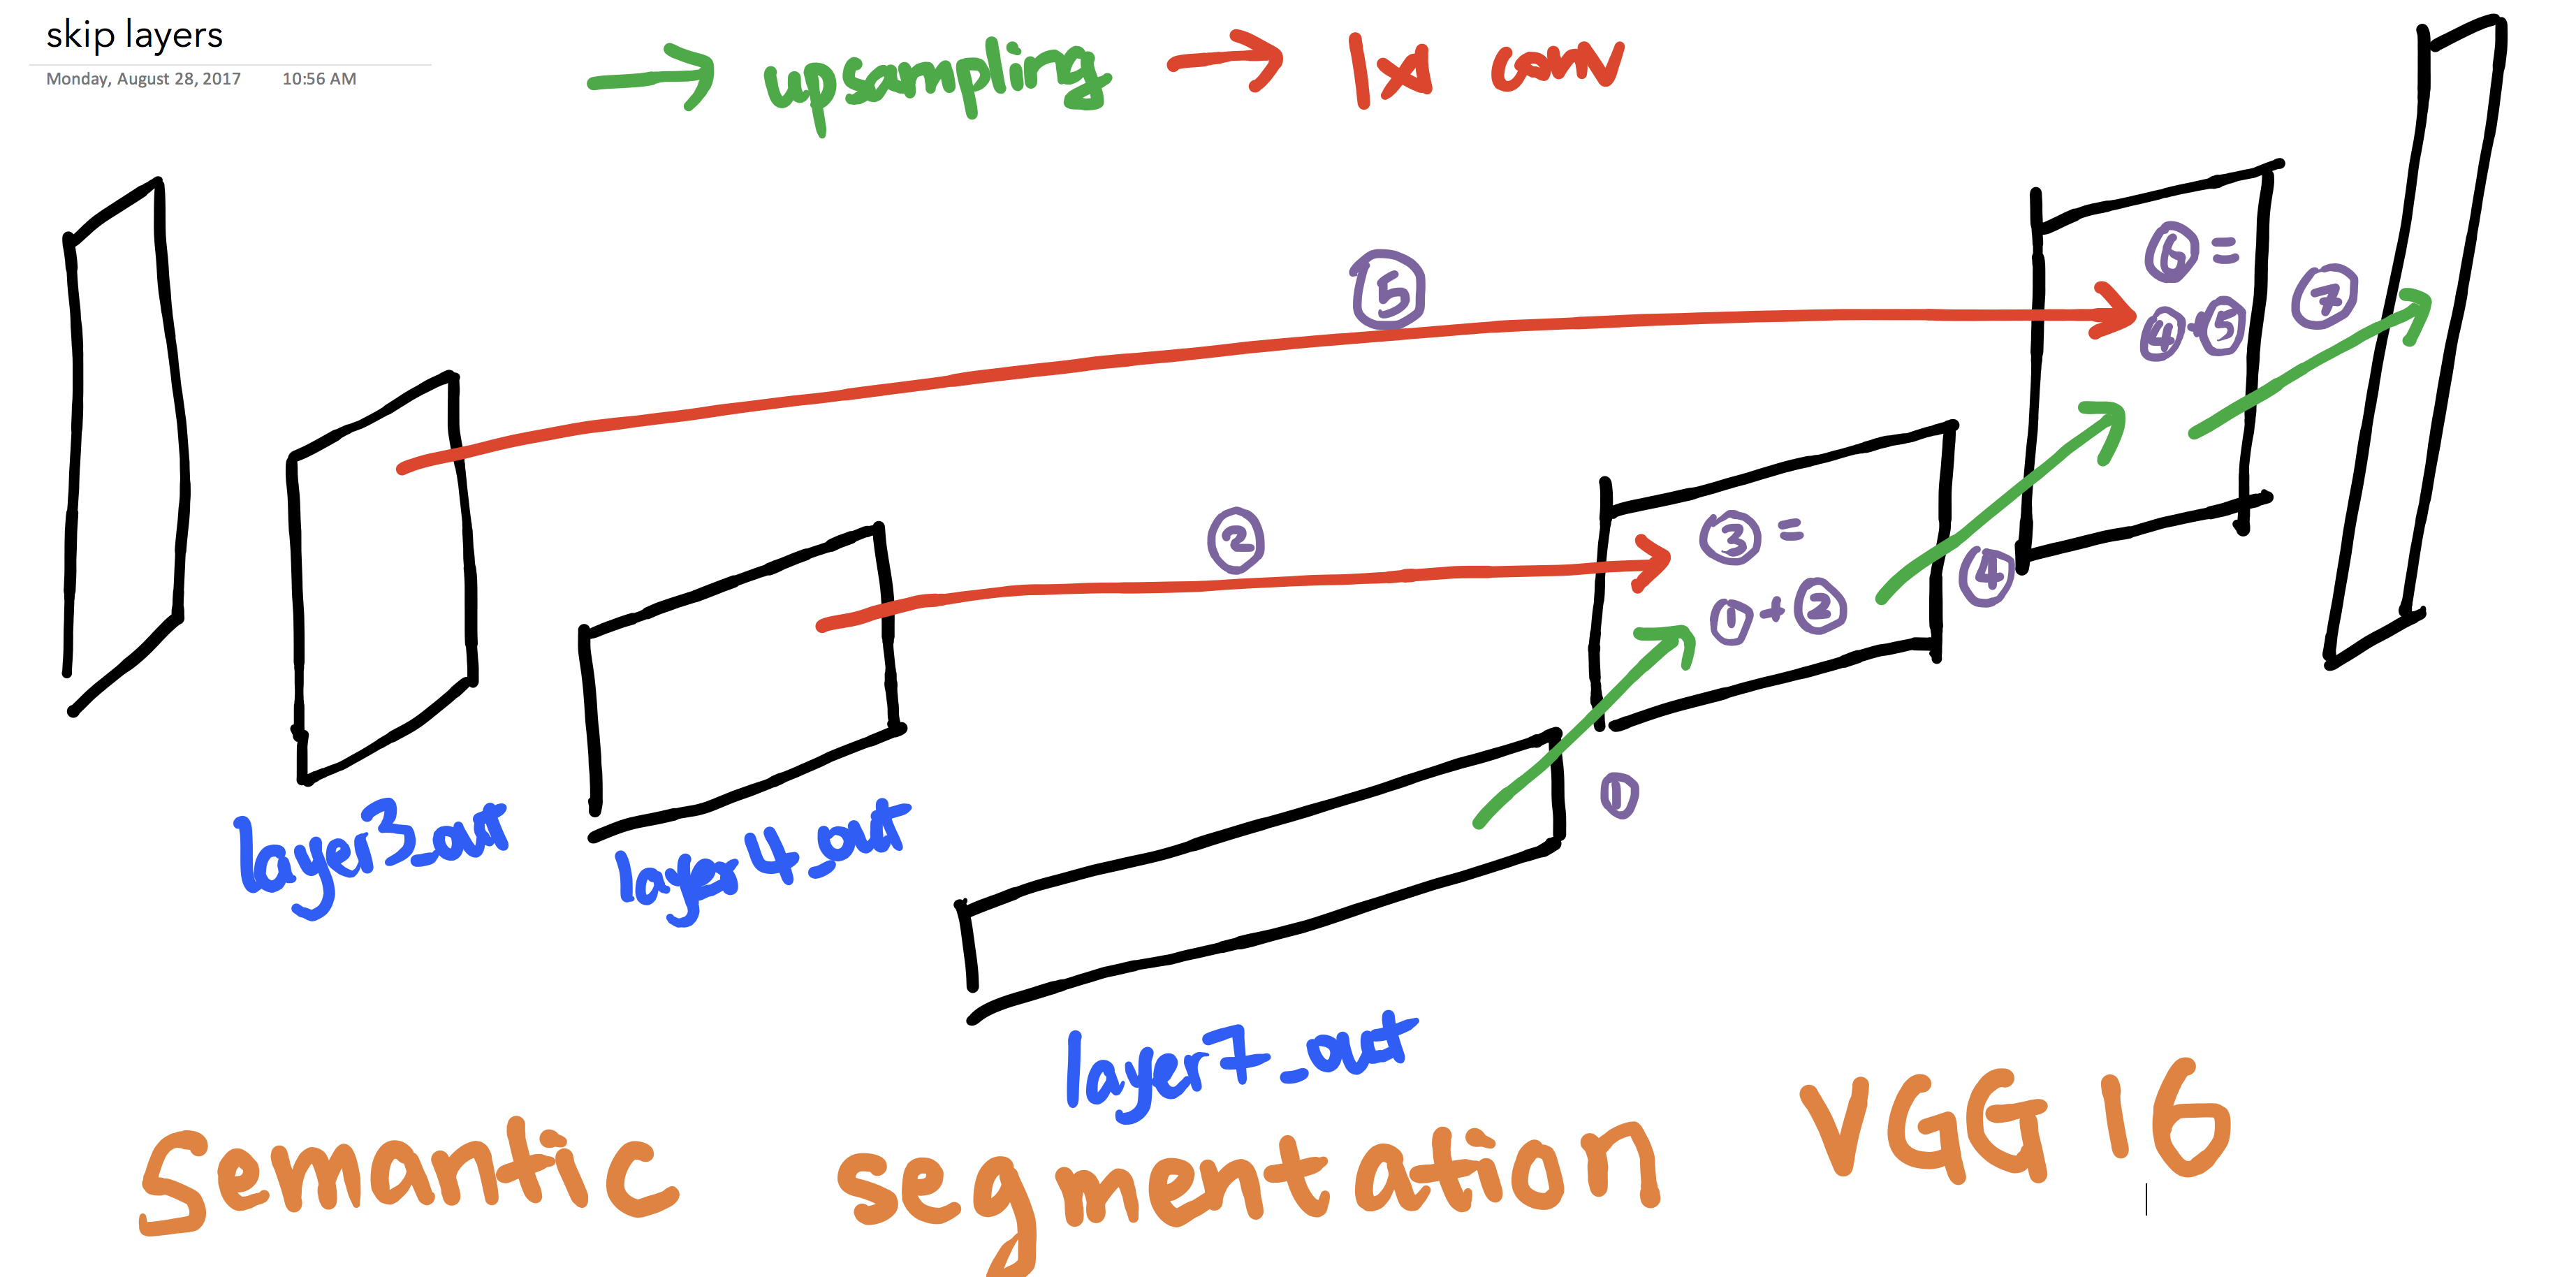 skip layers
Monday, August 28, 2017 10:56 AM
upsampling 1x1 conv
⑤
⑥ =
④+⑤
⑦
②
③ =
①+②
④
①
layer3_out
layer4_out
layer7_out
Semantic segmentation VGG16